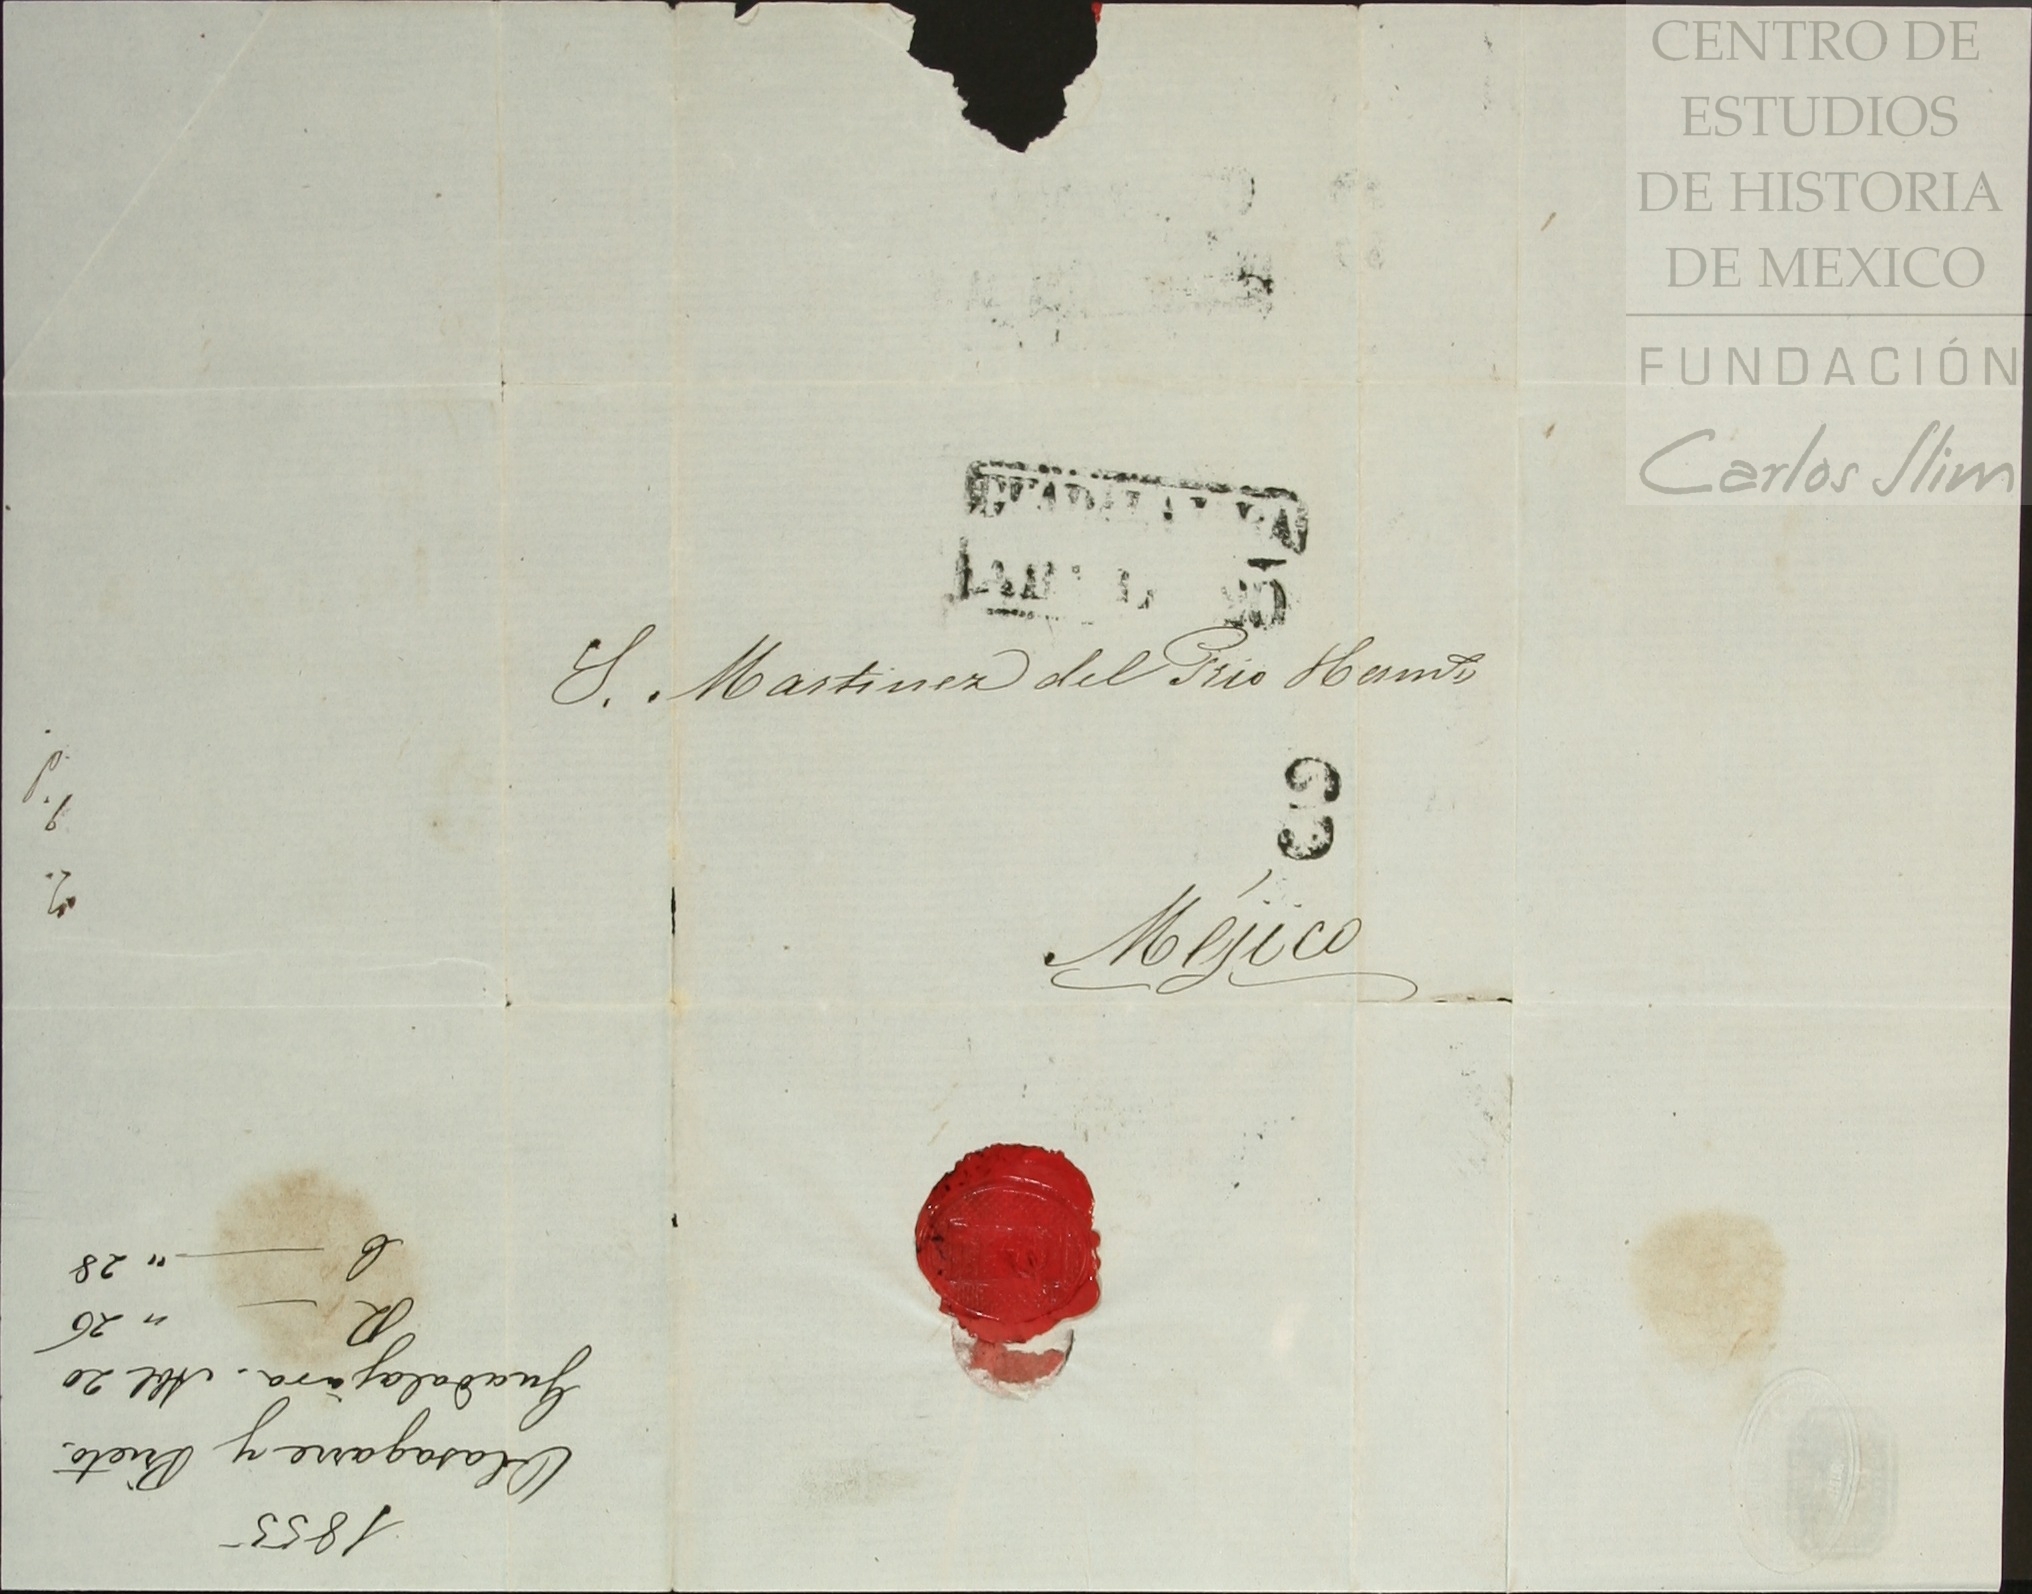 CENTRO DE
ESTUDIOS
DE HISTORIA
DE MEXICO
FUNDACIÓN
Carlos Slim
S. Martinez del Rio Herm.s
Méjico
1855
Olasagarre y Prieto.
Guadalajara. Abl 20
R — " 26
C — " 28